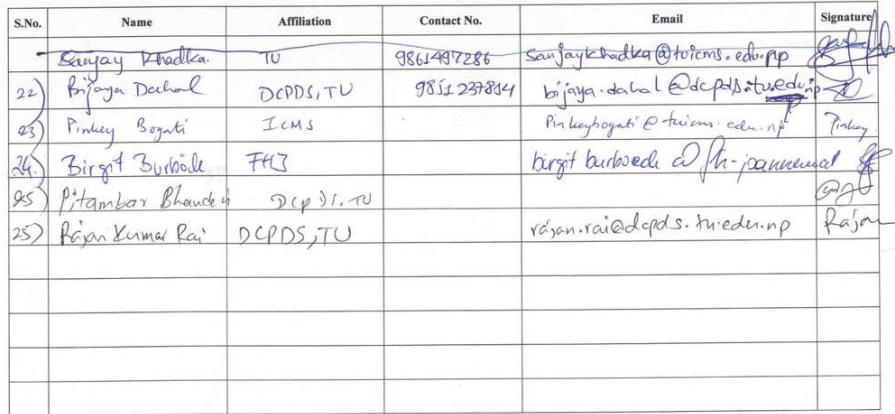 S.No. Name Affiliation Contact No. Email Signature
Sanjay Khadka. TU 9861497286 sanjaykhadka@tuicms.edu.np
22) Bijaya Dahal DCPDS, TU 9851237814 bijaya.dahal@dcpds.tu.edu.np
23) Pinkey Bogati ICMS Pinkeybogati@tuicms.edu.np Pinkey
24.) Birgit FHJ birgit @fh-joanneum.at
25) Pitambar Bhandari DCPDS, TU
25) Rajan Kumar Rai DCPDS, TU rajan.rai@dcpds.tu.edu.np Rajan